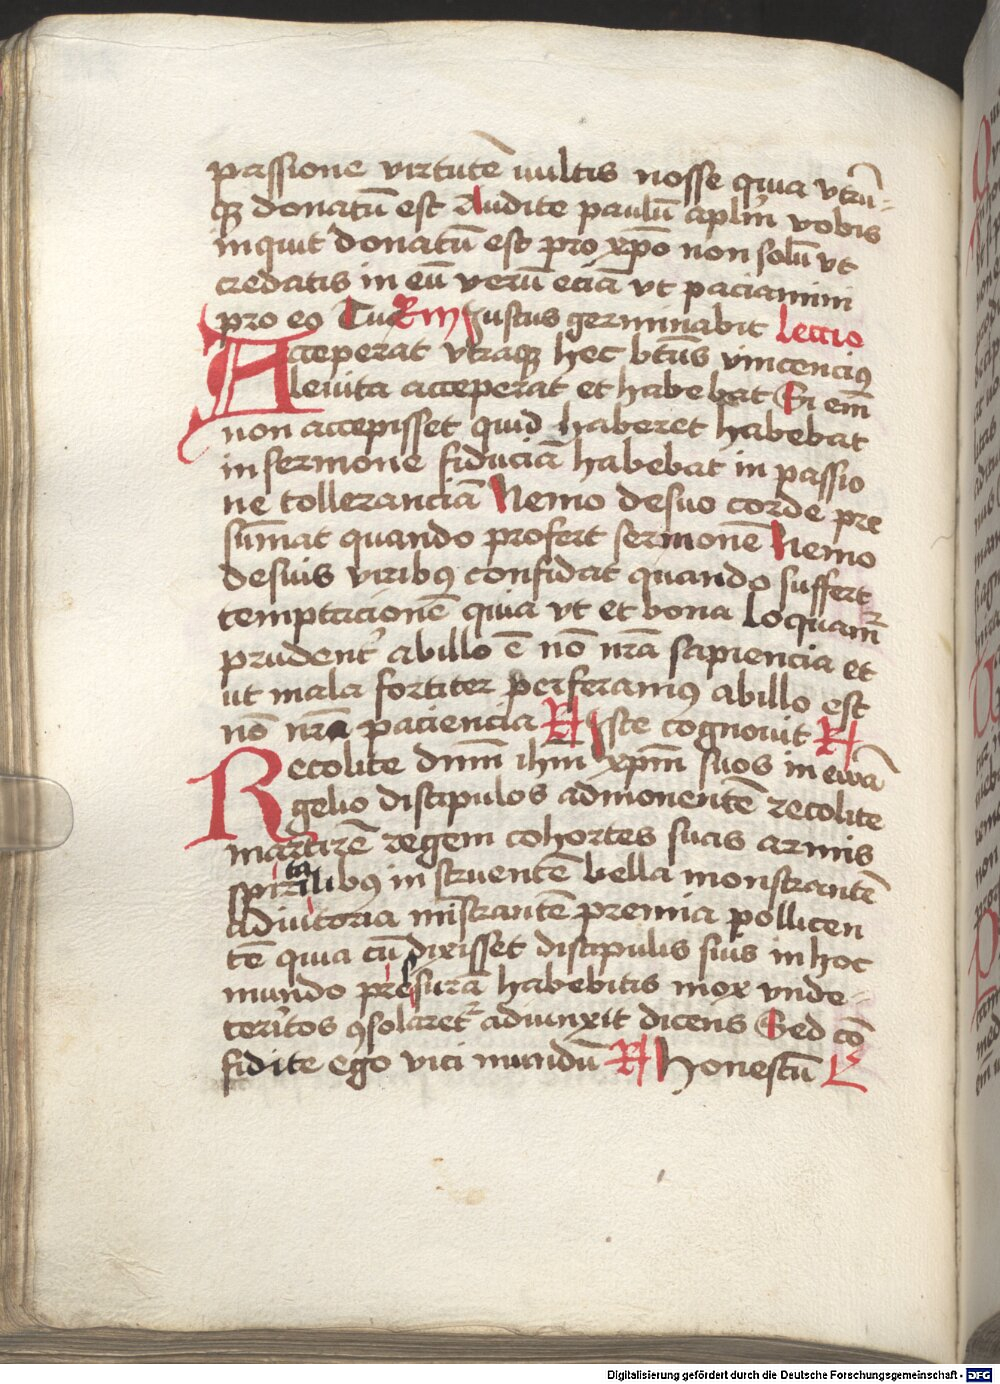 passione virtutē uultis nosse quia vtrū-
qꝫ donatū est Audite paulū aplm̄ vobis
inquit donatū est pro xp̄o non solū vt
credatis in eū verū eciā vt paciamini
pro eo Tu Rm Justus germinabit lectio
Acceperat vtraqꝫ hec bt̄us vincenciꝰ
leuita acceperat et habebat Si em̄
non accepisset quid haberet habebat
in sermone fiduciā habebat in passio
ne tolleranciā Nemo desuo corde pre
sūmat quando profert sermonē Nemo
desuis viribꝰ confidat quando suffert
temptacionē quia vt et bona loquamr
prudent̉ abillo ē nō nr̄a sapiencia et
ut mala fortiter perferamꝰ abillo est
nō nr̄a paciencia R Iste cognouit R
Recolite dnm̄ ihm̄ xpm̄ suos in ewā
gelio discipulos admonentē recolite
martirē regem cohortes suas armis
spiritalibꝰ instruentē bella monstrantē
adiutoria mīstrantē premia pollicen
tē quia cū dixisset discipulis suis in hoc
mundo pressurā habebitis mox vnde-
territos ꝯsolaret̉ adiunxit dicens Sed cō
fidite ego vici mundū R Honestū L
Digitalisierung gefördert durch die Deutsche Forschungsgemeinschaft - DFG